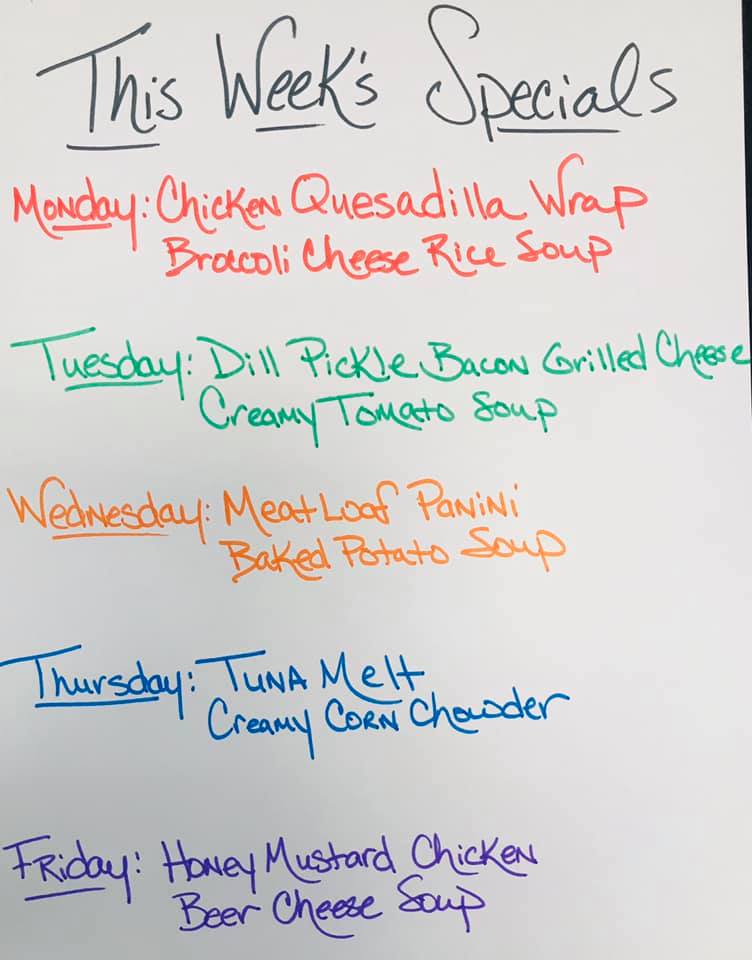 This Week's Specials
Monday: Chicken Quesadilla Wrap
Broccoli Cheese Rice Soup
Tuesday: Dill Pickle Bacon Grilled Cheese
Creamy Tomato Soup
Wednesday: Meatloaf Panini
Baked Potato Soup
Thursday: Tuna Melt
Creamy Corn Chowder
Friday: Honey Mustard Chicken
Beer Cheese Soup